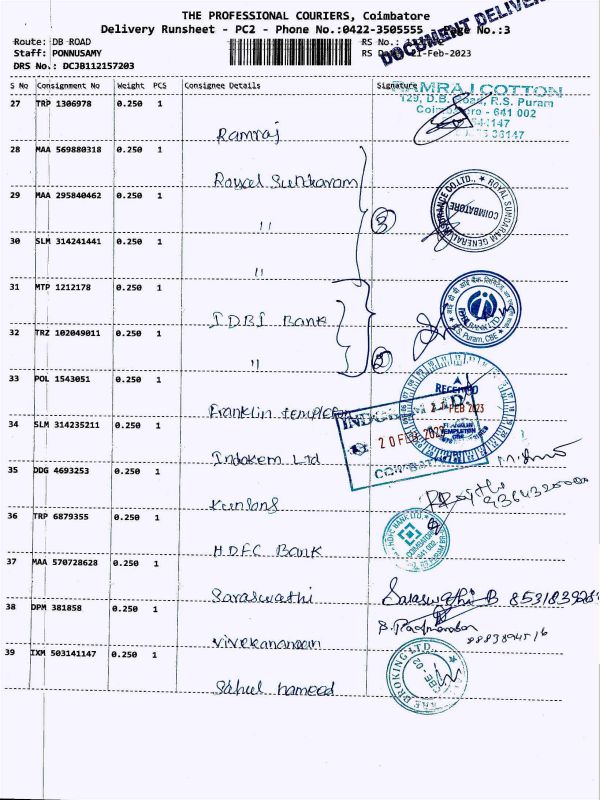 THE PROFESSIONAL COURIERS, Coimbatore
Delivery Runsheet - PC2 - Phone No.:0422-3505555 Page No.:3
DOCUMENT DELIVERY
Route: DB ROAD RS No.:
Staff: PONNUSAMY RS Date: 21-Feb-2023
DRS No.: DCJB112157203
S No Consignment No Weight PCS Consignee Details Signature
RAMRAJ COTTON
129, D.B. Road, R.S. Puram
Coimbatore - 641 002
27 TRP 1306978 0.250 1
Ramraj
28 MAA 569880318 0.250 1
Royal Sundaram
ROYAL SUNDARAM GENERAL INSURANCE CO.LTD.,
COIMBATORE
29 MAA 295840462 0.250 1
"
30 SLM 314241441 0.250 1
"
31 MTP 1212178 0.250 1
IDBI Bank
IDBI BANK LTD.
R.S. Puram, CBE
32 TRZ 102049011 0.250 1
"
33 POL 1543051 0.250 1
Franklin templeton
RECEIVED
FEB 2023
FRANKLIN
TEMPLETON
34 SLM 314235211 0.250 1
Indokem Ltd
20 FEB 2023
COIMBATORE
35 DDG 4693253 0.250 1
36 TRP 6879355 0.250 1
HDFC Bank
HDFC BANK LTD.
COIMBATORE
641 002
37 MAA 570728628 0.250 1
Saraswathi
Saraswathi B
38 DPM 381858 0.250 1
Vivekanandan
39 IXM 503141147 0.250 1
Sahul hameed
BROKING LTD.
CBE - 02